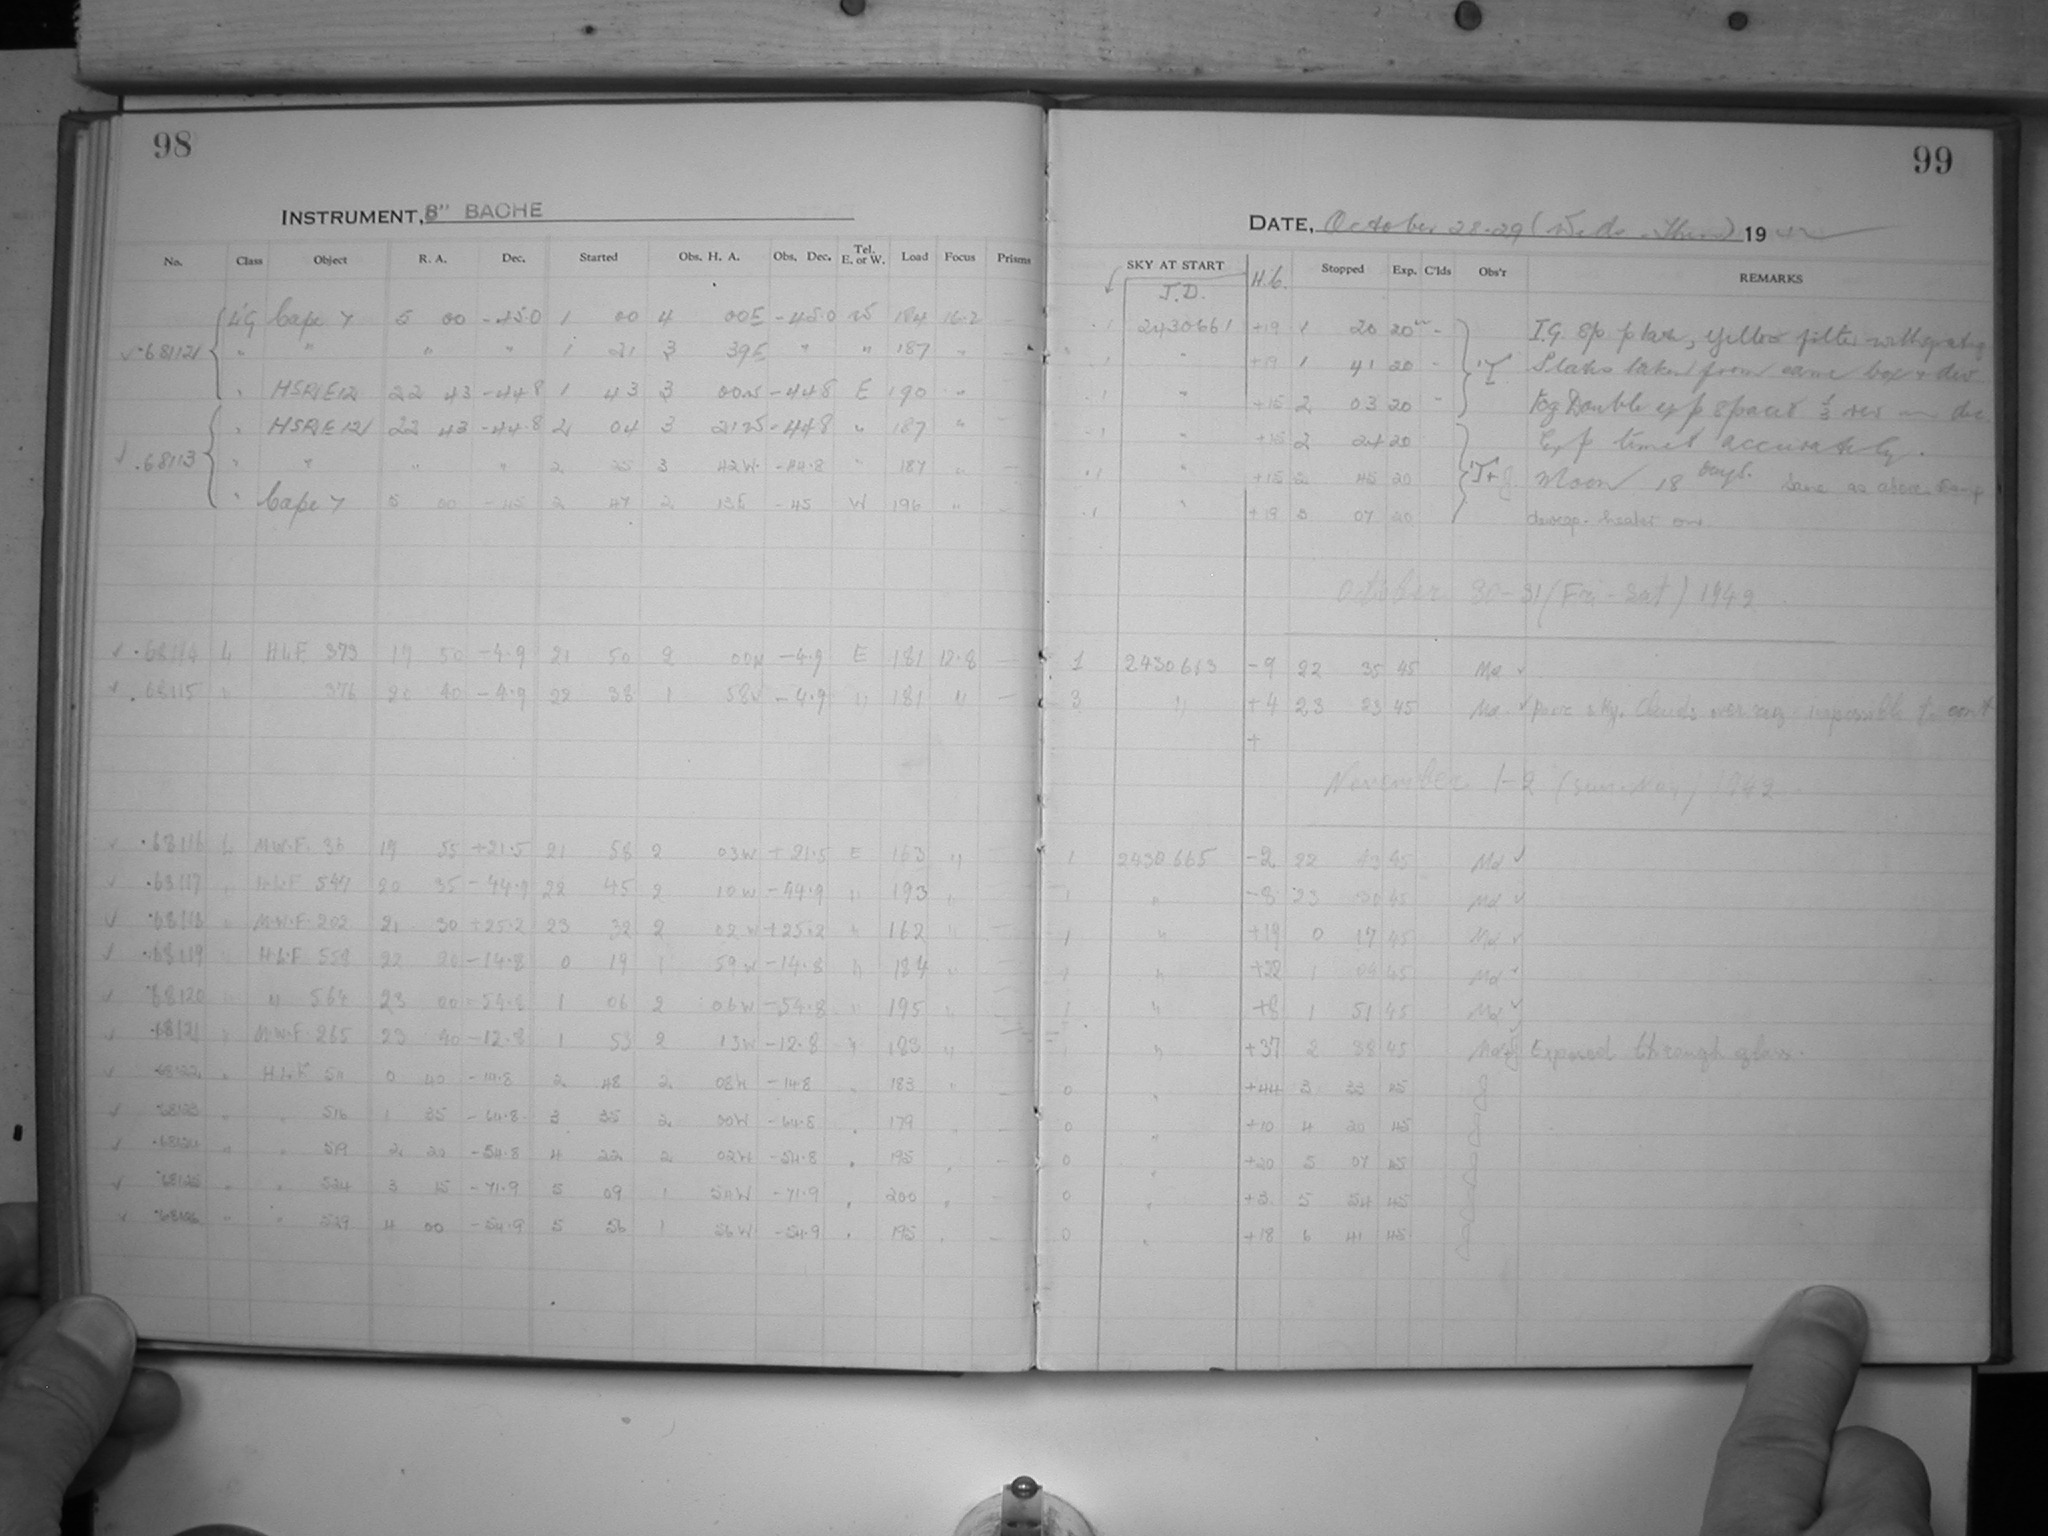 98
INSTRUMENT, 8" BACHE
No. Class Object R. A. Dec. Started Obs. H. A. Obs. Dec. Tel. E. or W. Load Focus Prisms
Cape 5 00 -45.0 1 00 4 00E -45.0 W 184 16.2
" " " " 1 21 3 39E " " 187 "
" 22 43 -44.8 1 43 3 00W -44.8 E 190 "
" 22 43 -44.8 2 04 3 21W -44.8 " 187 "
.68113 " " " " 2 25 3 42W -44.8 " 187 "
" Cape 5 00 -45 2 47 2 13E -45 W 196 "
.68114 L H.L.F. 373 19 50 -4.9 21 50 2 00W -4.9 E 181 12.8 —
.68115 " 376 20 40 -4.9 22 38 1 58W -4.9 " 181 " —
.68116 L M.W.F. 19 55 +21.5 21 58 2 03W +21.5 E 163 "
.68117 " H.L.F. 547 20 35 -44.9 22 45 2 10W -44.9 " 193 "
.68118 " M.W.F. 202 21 30 +25.2 23 32 2 02W +25.2 " 162 "
.68119 " H.L.F. 22 20 -14.8 0 19 1 59W -14.8 " 184 "
.68120 " " 564 23 00 -54.8 1 06 2 06W -54.8 " 195 "
.68121 " M.W.F. 265 23 40 -12.8 1 53 2 13W -12.8 " 183 "
.68122 " H.L.F. 0 40 -14.8 2 48 2 08W -14.8 183 "
.68123 " " 516 1 35 -64.8 3 35 2 00W -64.8 " 179 "
.68124 " " 519 2 20 -54.8 4 22 2 02W -54.8 " 195 "
.68125 " " 524 3 15 -71.9 5 09 1 54W -71.9 " 200 "
.68126 " " 529 4 00 -54.9 5 56 1 56W -54.9 " 195 "
99
DATE, October 28-29 (Wed. - Thur.) 19
SKY AT START H.C. Stopped Exp. C'lds Obs'r REMARKS
J.D.
1 2430661 +19 1 20 20 I.G. Sp. plate, yellow filter with
1 " +19 1 41 20 taken from same box + dev
1 " +15 2 03 20 Double exp
1 " +15 2 24 20 Exp timed accurately.
1 " +15 2 45 20 Moon 18 days. Same as above
1 " +19 3 07 20 heater on
October 30-31 (Fri - Sat) 1942
1 2430663 -9 22 35 45 Md
3 " +4 23 23 45 Md Poor sky. Clouds impossible to
+
November 1-2 (Sun-Mon) 1942
1 2430665 -2 22 43 45 Md
1 " -8 23 30 45 Md
1 " +19 0 17 45 Md
1 " 1 04 45 Md
1 " +8 1 51 45 Md
1 " +37 2 38 45 Exposed through glass.
0 " +44 3 33 45
0 " +10 4 20 45
0 " +20 5 07 45
0 " +3 5 54 45
0 " +18 6 41 45